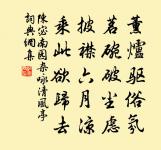 薰爐驅俗氛
茗碗破塵念
披襟六月涼
乘此欲歸去
陳宓南園雜咏清風亭
詞典網集